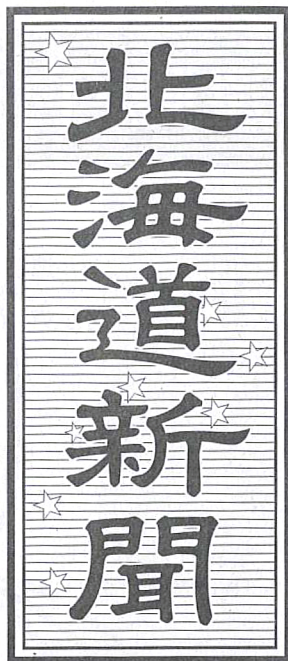 北海道新聞